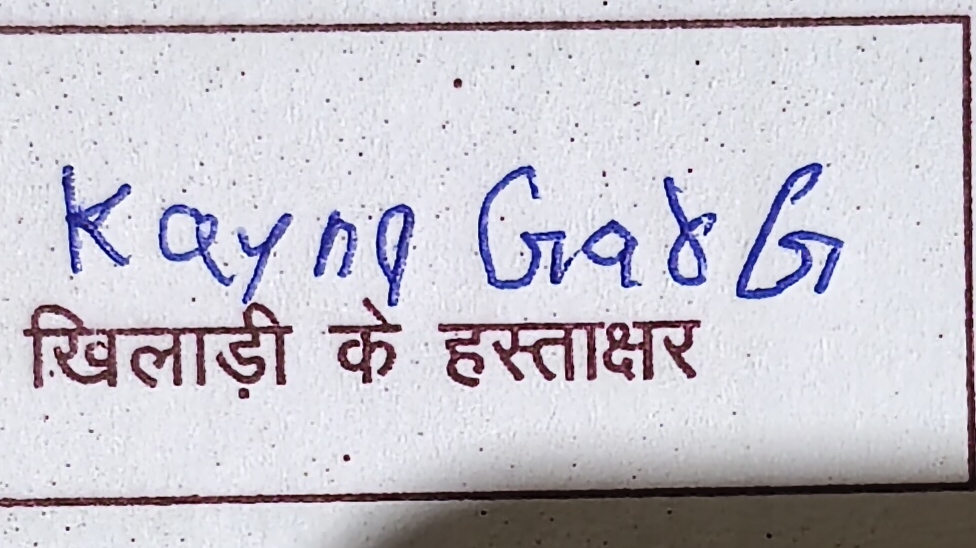 Kayna GarG
खिलाड़ी के हस्ताक्षर